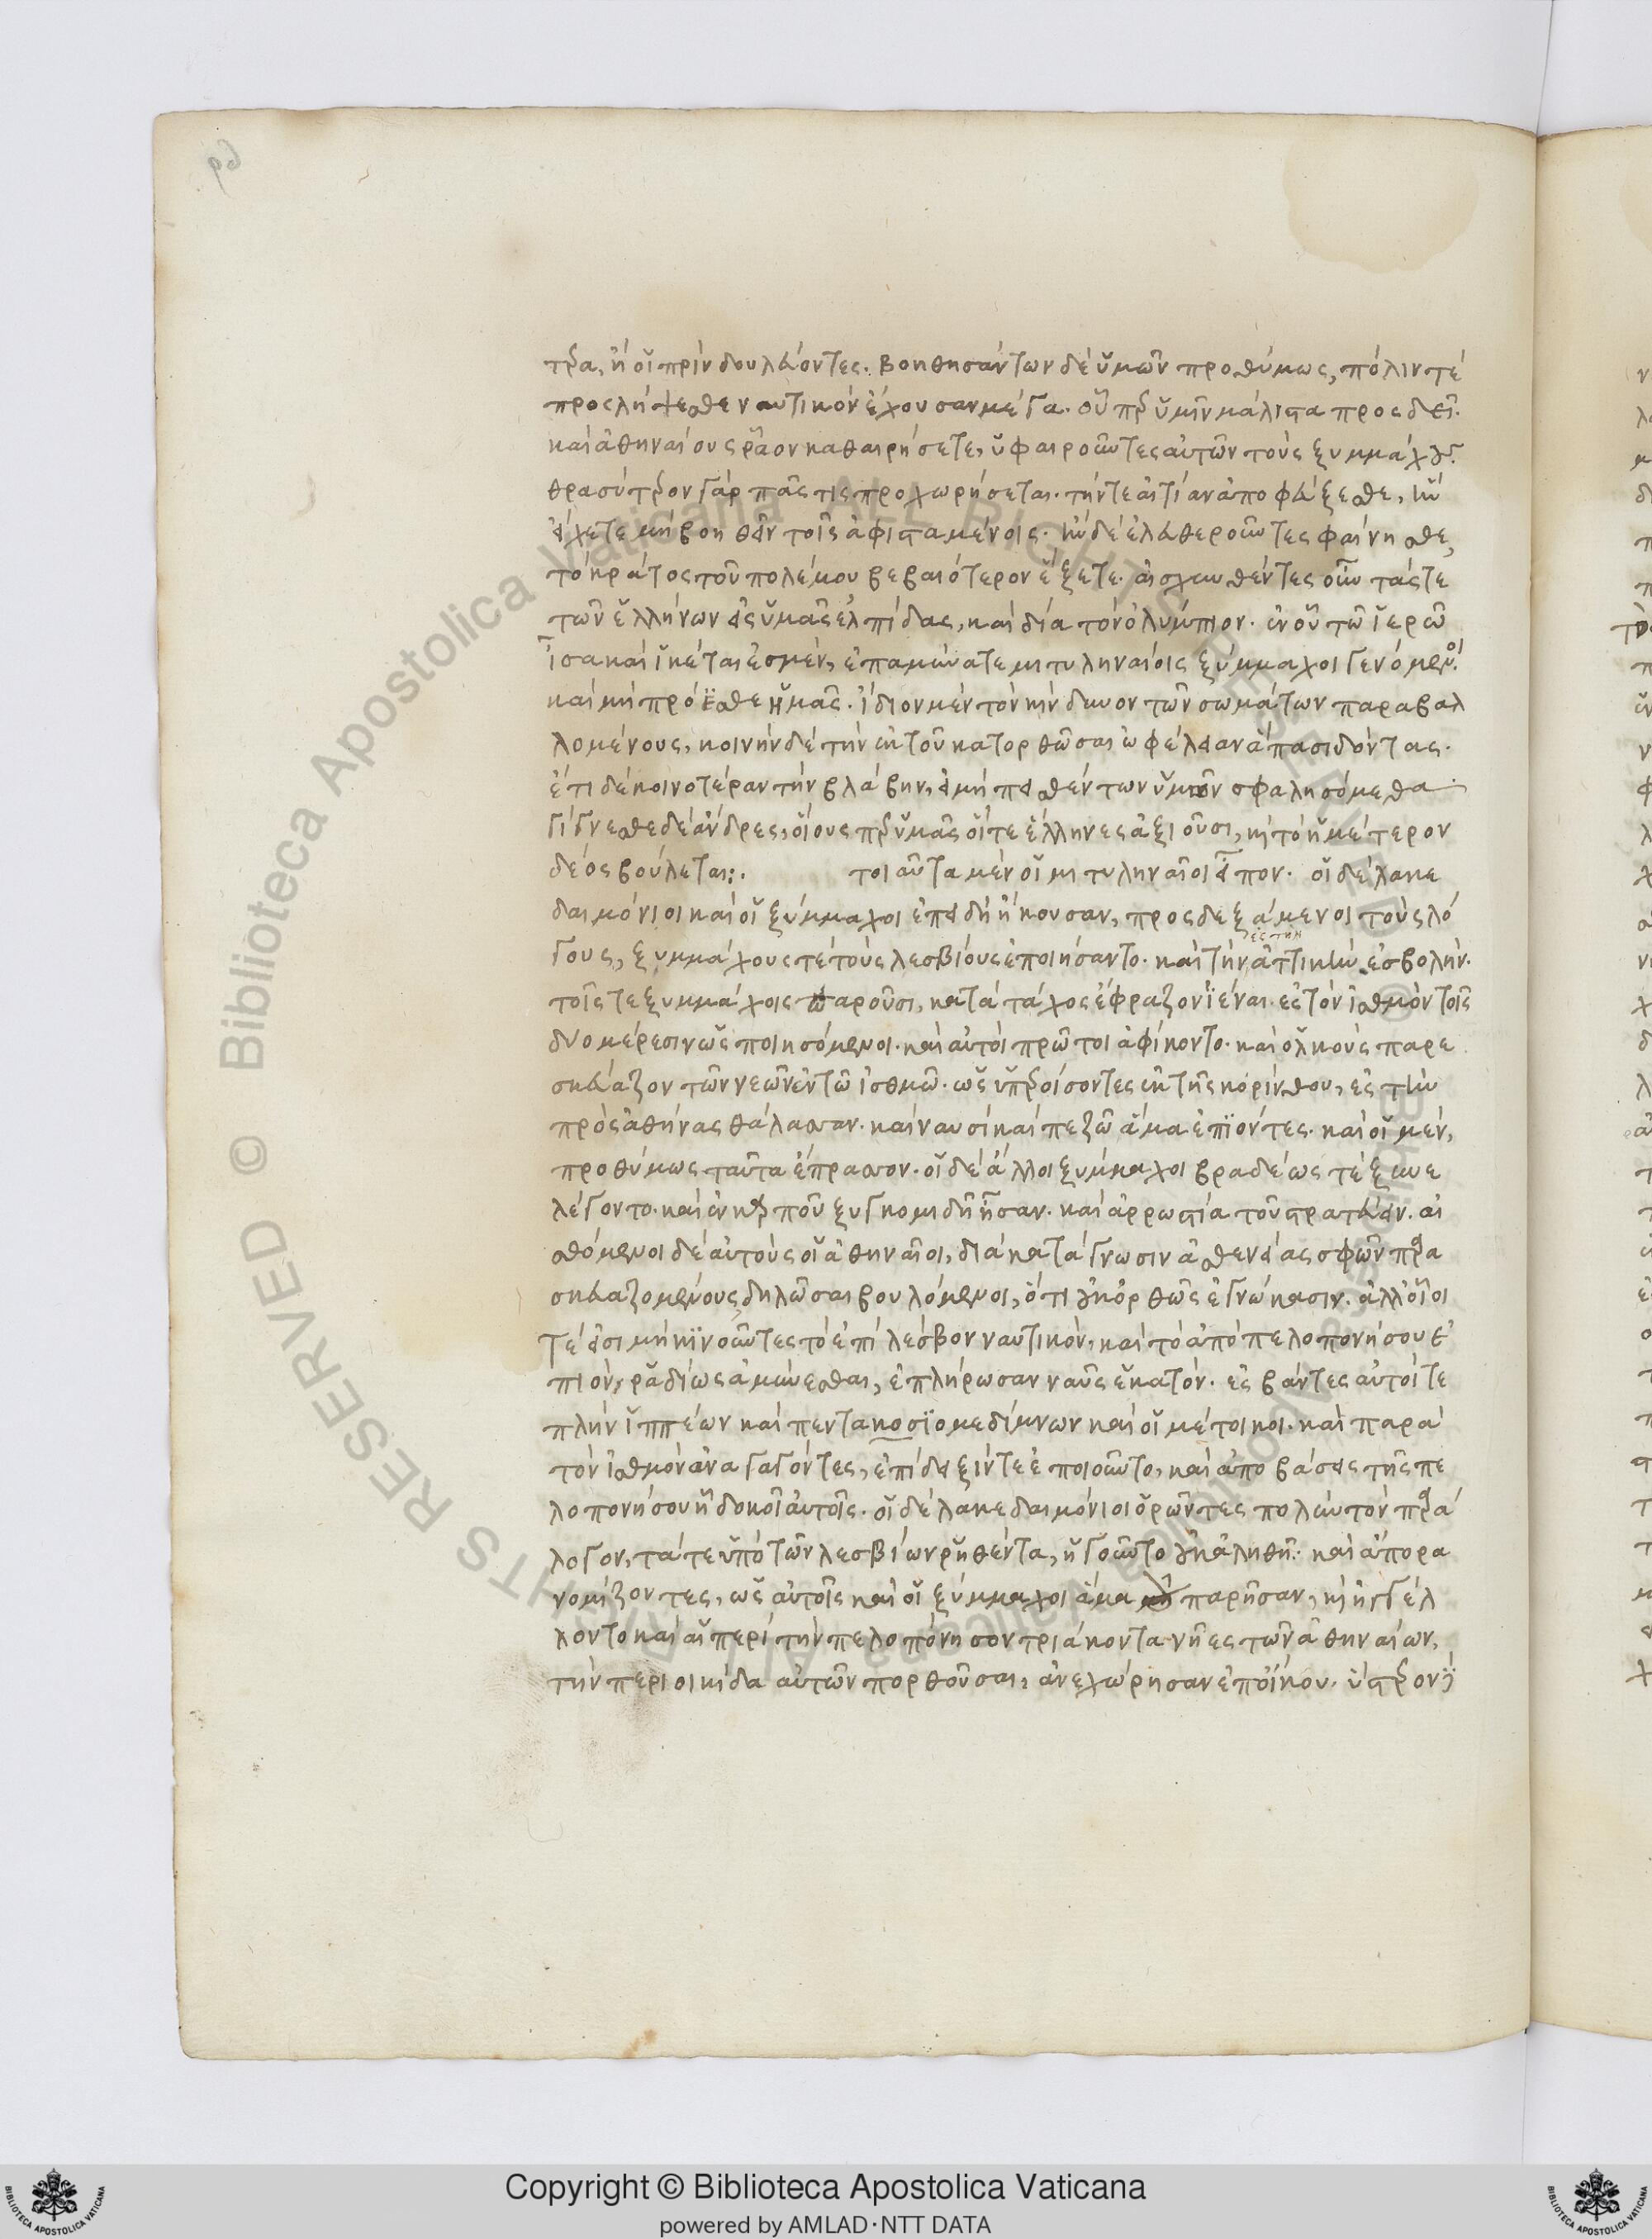 τρα, ἢ οἱ πρὶν δουλεύοντες. βοηθησάντων δὲ ὑμῶν προθύμως, πόλιν τὲ
προσλήψεσθε ναυτικὸν ἔχουσαν μέγα. οὗπερ ὑμῖν μάλιστα προσδεῖ.
καὶ ἀθηναίους ῥᾶον καθαιρήσετε, ὑφαιροῦντες αὐτῶν τοὺς ξυμμάχους.
θρασύτερον γὰρ πᾶς τις προχωρήσεται. τήν τε αἰτίαν ἀποφεύξεσθε, ἣν
εἴχετε μὴ βοηθεῖν τοῖς ἀφισταμένοις. ἢν δὲ ἐλευθεροῦντες φαίνησθε,
τὸ κράτος τοῦ πολέμου βεβαιότερον ἕξετε. αἰσχυνθέντες οὖν τάς τε
τῶν ἑλλήνων εἰς ὑμᾶς ἐλπίδας, καὶ δία τὸν ὀλύμπιον. ἐν οὗ τῶ ἱερῶ
ἴσα καὶ ἱκέται ἐσμέν, ἐπαμύνατε μιτυληναίοις ξύμμαχοι γενόμενοι.
καὶ μὴ πρόησθε ἡμᾶς. ἴδιον μὲν τὸν κίνδυνον τῶν σωμάτων παραβαλ
λομένους, κοινὴν δὲ τὴν ἐκ τοῦ κατορθῶσαι ὠφέλειαν ἅπασι δόντας.
ἔτι δὲ κοινοτέραν τὴν βλάβην, εἰ μὴ πεισθέντων ὑμῶν σφαλησόμεθα
γίγνεσθε δὲ ἄνδρες, οἵους περ ὑμᾶς οἵ τε ἕλληνες ἀξιοῦσι, καὶ τὸ ἡμέτερον
δέος βούλεται:. τοιαῦτα μὲν οἱ μιτυληναῖοι εἶπον. οἱ δὲ λακε
δαιμόνιοι καὶ οἱ ξύμμαχοι ἐπειδὴ ἤκουσαν, προσδεξάμενοι τοὺς λό
γους, ξυμμάχους τὲ τοὺς λεσβίους ἐποιήσαντο. καὶ τὴν ἐς τὴν ἀττικὴν ἐσβολήν.
τοῖς τε ξυμμάχοις παροῦσι, κατὰ τάχος ἔφραζον ἰέναι ἐς τὸν ἰσθμὸν τοῖς
δυο μέρεσιν ὡς ποιησόμενοι. καὶ αὐτοὶ πρῶτοι ἀφίκοντο. καὶ ὁλκοὺς παρε
σκεύαζον τῶν νεῶν ἐν τῶ ἰσθμῶ. ὡς ὑπεροίσοντες ἐκ τῆς κορίνθου, ἐς τὴν
πρὸς ἀθήνας θάλασσαν. καὶ ναυσὶ καὶ πεζῶ ἅμα ἐπιόντες. καὶ οἱ μέν,
προθύμως ταῦτα ἔπρασσον. οἱ δὲ ἄλλοι ξύμμαχοι βραδέως τὲ ξυνε
λέγοντο. καὶ ἐν καρποῦ ξυγκομιδῆ ἦσαν. καὶ ἀρρωστία τοῦ στρατεύειν. αἰ
σθόμενοι δὲ αὐτοὺς οἱ ἀθηναῖοι, διὰ κατάγνωσιν ἀσθενείας σφῶν παρα
σκευαζομένους, δηλῶσαι βουλόμενοι, ὅτι οὐκ ὀρθῶς ἐγνώκασιν. ἀλλ' οἷοι
τέ εἰσι μὴ κινοῦντες τὸ ἐπὶ λέσβον ναυτικόν, καὶ τὸ ἀπὸ πελοπονήσου ἐ
πιόν, ῥαδίως ἀμύνεσθαι, ἐπλήρωσαν ναῦς ἑκατόν. ἐσβάντες αὐτοί τε
πλὴν ἱππέων καὶ πεντακοσιομεδίμνων καὶ οἱ μέτοικοι. καὶ παρὰ
τὸν ἰσθμὸν ἀναγαγόντες, ἐπίδειξίν τε ἐποιοῦντο, καὶ ἀποβάσεις τῆς πε
λοπονήσου ᾗ δοκοῖ αὐτοῖς. οἱ δὲ λακεδαιμόνιοι ὁρῶντες πολὺν τὸν παρά
λογον, τά τε ὑπὸ τῶν λεσβίων ῥηθέντα, ἡγοῦντο οὐκ ἀληθῆ. καὶ ἄπορα
νομίζοντες, ὡς αὐτοῖς καὶ οἱ ξύμμαχοι ἅμα παρῆσαν, καὶ ἠγγέλ
λοντο καὶ αἱ περὶ τὴν πελοπόνησον τριάκοντα νῆες τῶν ἀθηναίων,
τὴν περιοικίδα αὐτῶν πορθοῦσαι, ἀνεχώρησαν ἐπ' οἴκου. ὕστερον